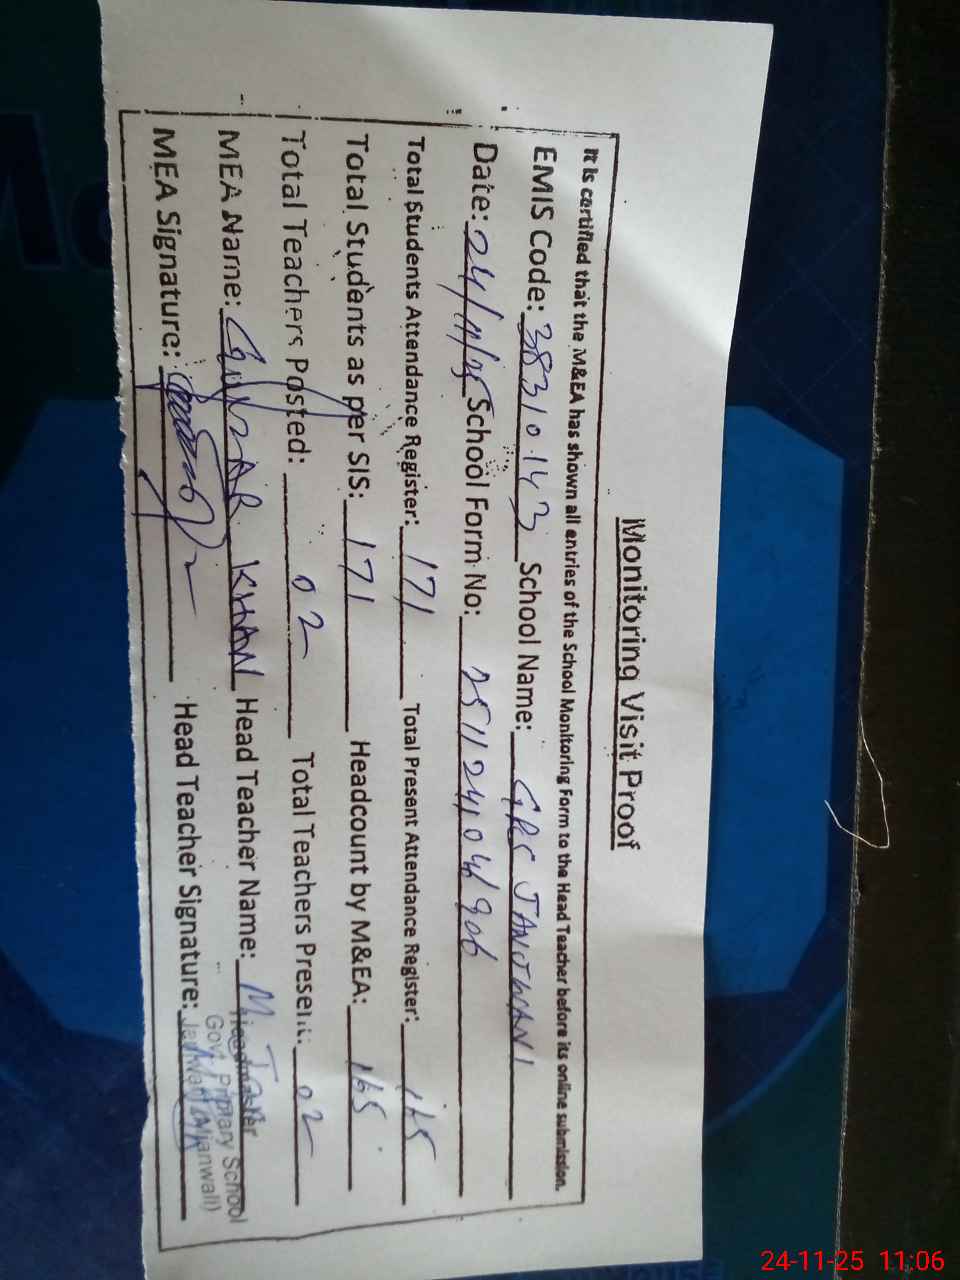 Monitoring Visit Proof
It is certified that the M&EA has shown all entries of the School Monitoring Form to the Head Teacher before its online submission.
EMIS Code: 38310143 School Name: GPS JANJWANI
Date: 24/11/25 School Form No: 251124104906
Total Students Attendance Register: 171 Total Present Attendance Register: 165
Total Students as per SIS: 171 Headcount by M&EA: 165
Total Teachers Posted: 02 Total Teachers Present: 02
MEA Name: GULZAR KHAN Head Teacher Name: M
Headmaster
Govt. Primary School
MEA Signature: Head Teacher Signature:
(Mianwali)
24-11-25 11:06